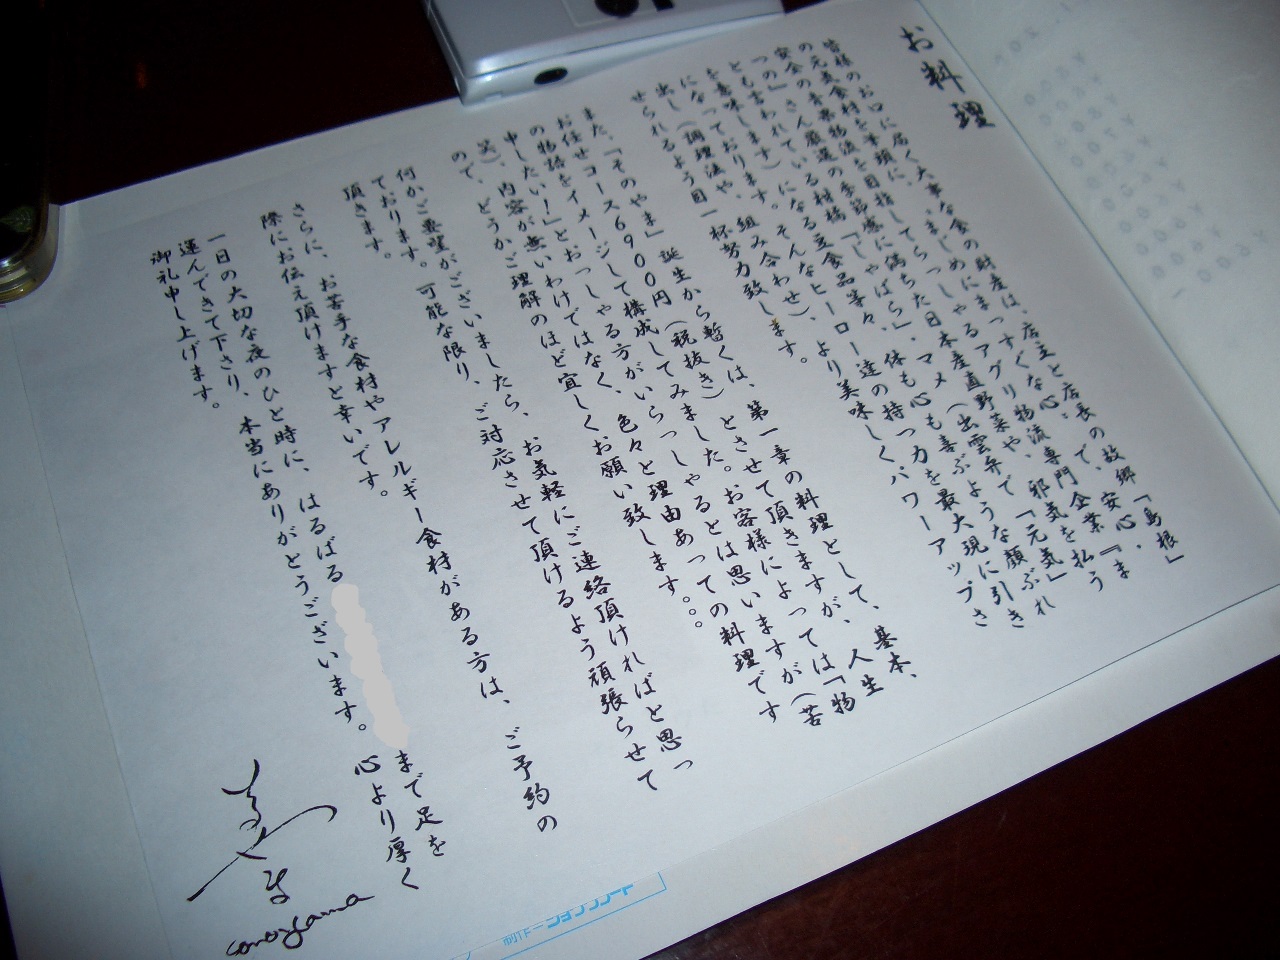 お料理
皆様のお口に届く大事な食の財産は、店主と店長の故郷「島根」
の元気食材を筆頭に、まじめにまっすぐな心で、安心・
安全の青果物流を目指してらっしゃるアグリ物流専門企業『ま
つの』さん厳選の季節感に満ちた日本産直野菜や、邪気を払う
とも言われている柑橘「じゃばら」、マメ（出雲弁で「元気」
を意味します）になる豆食品等々、体も心も喜ぶような顔ぶれ
になっております。そんなヒーロー達の持つ力を最大現に引き
出し（調理法や、組み合わせ）、より美味しくパワーアップさ
せられるよう目一杯努力致します。
また、「そのやま」誕生から暫くは、第一章の料理として、基本、
お任せコース6900円（税抜き）とさせて頂きますが、人生
の物語をイメージして構成してみました。お客様によっては「物
申したい！」とおっしゃる方がいらっしゃるとは思いますが（苦
笑）、内容が無いわけではなく、色々と理由あっての料理です
ので、どうかご理解のほど宜しくお願い致します。。。
何かご要望がございましたら、お気軽にご連絡頂ければと思っ
ております。可能な限り、ご対応させて頂けるよう頑張らせて
頂きます。
さらに、お苦手な食材やアレルギー食材がある方は、ご予約の
際にお伝え頂けますと幸いです。
一日の大切な夜のひと時に、はるばる
まで足を
運んできて下さり、本当にありがとうございます。心より厚く
御礼申し上げます。
sonoyama